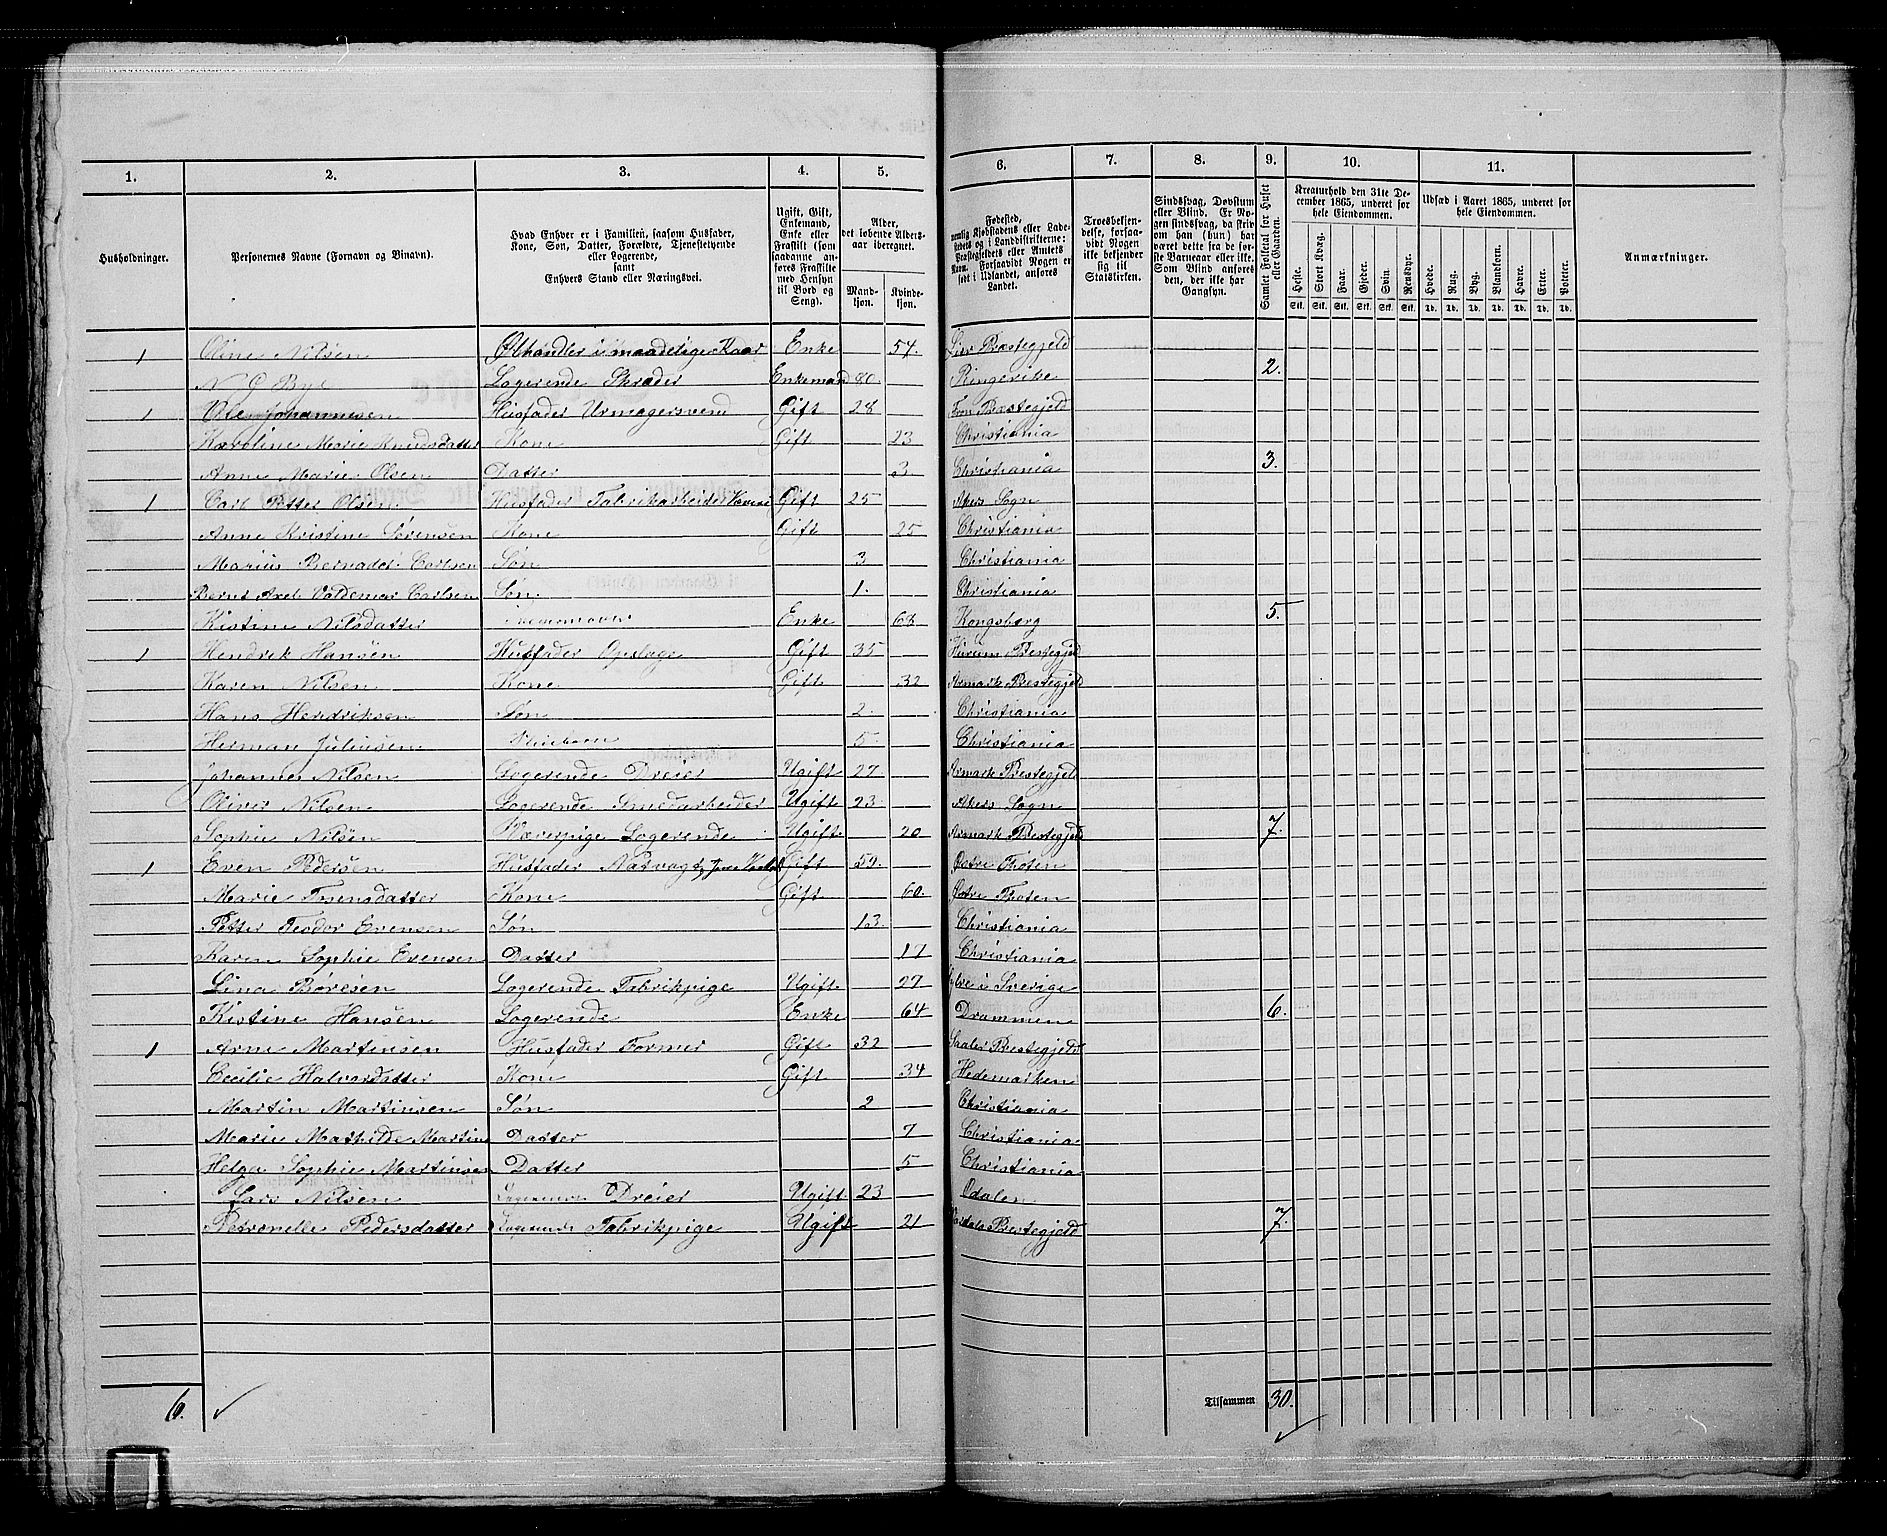 1. 2. 3. 4. 5. 6. 7. 8. 9. 10. 11.
Husholdninger.
Personernes Navne (Fornavn og Binavn).
Hvad Enhver er i Familien, saasom Husfader, Kone, Søn, Datter, Forældre, Tjenestetyende eller Logerende, samt Enhvers Stand eller Næringsvei.
Ugift, Gift, Enkemand, Enke eller Fraskilt (som saadanne anføres Fraskilte med Hensyn til Bord og Seng).
Alder, det løbende Aldersaar iberegnet.
Mandkjøn. Kvindekjøn.
Fødested, nemlig Kjøbstadens eller Ladestedets og i Landdistrikterne: Præstegjeldets eller Amtets Navn. Forsaavidt Nogen er født i Udlandet, anføres Landet.
Troesbekjendelse, forsaavidt Nogen ikke bekjender sig til Statskirken.
Sindssvag, Døvstum eller Blind. Er Nogen sindssvag, da skrives om han (hun) har været dette fra de første Barneaar eller ikke. Som Blind anføres den, der ikke har Gangsyn.
Samlet Folketal for Huset eller Gaarden.
Kreaturhold den 31te December 1865, underet for hele Eiendommen.
Heste. Stort Kvæg. Faar. Gjeder. Sviin. Rensdyr.
Stk. Stk. Stk. Stk. Stk. Stk.
Udsæd i Aaret 1865, underet for hele Eiendommen.
Hvede. Rug. Byg. Blandkorn. Havre. Erter. Poteter.
Td. Td. Td. Td. Td. Td. Td.
Anmærkninger.
1 Oline Nilsen Ølhandler i maadelige Kaar Enke 54. Lier Præstegjeld
N O Bye Logerende Skræder Enkemand 80. Ringerike 2.
1 Ole Johannesen Husfader Urmagersvend Gift 28 Præstegjeld
Karoline Marie Knudsdatter Kone Gift 23 Christiania
Anne Marie Olsen Datter 3. Christiania 3.
1 Carl Petter Olsen Husfader Fabrikarbeider Gift 25 Akers Sogn
Anne Kristine Sørensen Kone Gift 25 Christiania
Marius Carlsen Søn 3 Christiania
Bernt Axel Valdemar Carlsen Søn. 1. Christiania
Kistine Nilsdatter Enke 63 Kongsberg 5.
1 Hendrik Hansen Husfader Gift 35 Hurum Præstegjeld
Karen Nilsen Kone Gift 32 Aremark Præstegjeld
Hans Hendriksen Søn 2. Christiania
Herman Juliusen Pleiebarn 5 Christiania
Johannes Nilsen Logerende Dreier Ugift 27 Armark Præstegjeld
Oliver Nilsen Logerende Smedarbeider Ugift 23. Akers Sogn
Sophie Nilsen Væverpige Logerende Ugift 20 Armark Præstegjeld 7.
1 Even Pedersen Husfader Gift 59. Østre Thoten
Marie Kone Gift 60. Østre Thoten
Petter Teodor Evensen Søn 13. Christiania
Karen Sophie Evensen Datter 17 Christiania
Lina Børesen Logerende Fabrikpige Ugift 27 i Sverige
Kistine Hansen Logerende Enke 64 Drammen 6.
1 Arne Martinsen Husfader Former Gift 32 Præstegjeld
Cecilie Halvorsdatter Kone Gift 34 Hedemarken
Martin Martinsen Søn 2 Christiania
Marie Mathilde Martins Datter 7 Christiania
Helga Sophie Martinsen Datter 5 Christiania
Lars Nilsen Logerende Dreier Ugift 23 Odalen
Petronelle Pedersdatter Logerende Fabrikpige Ugift 21 Præstegjeld 7.
6. Tilsammen 30.